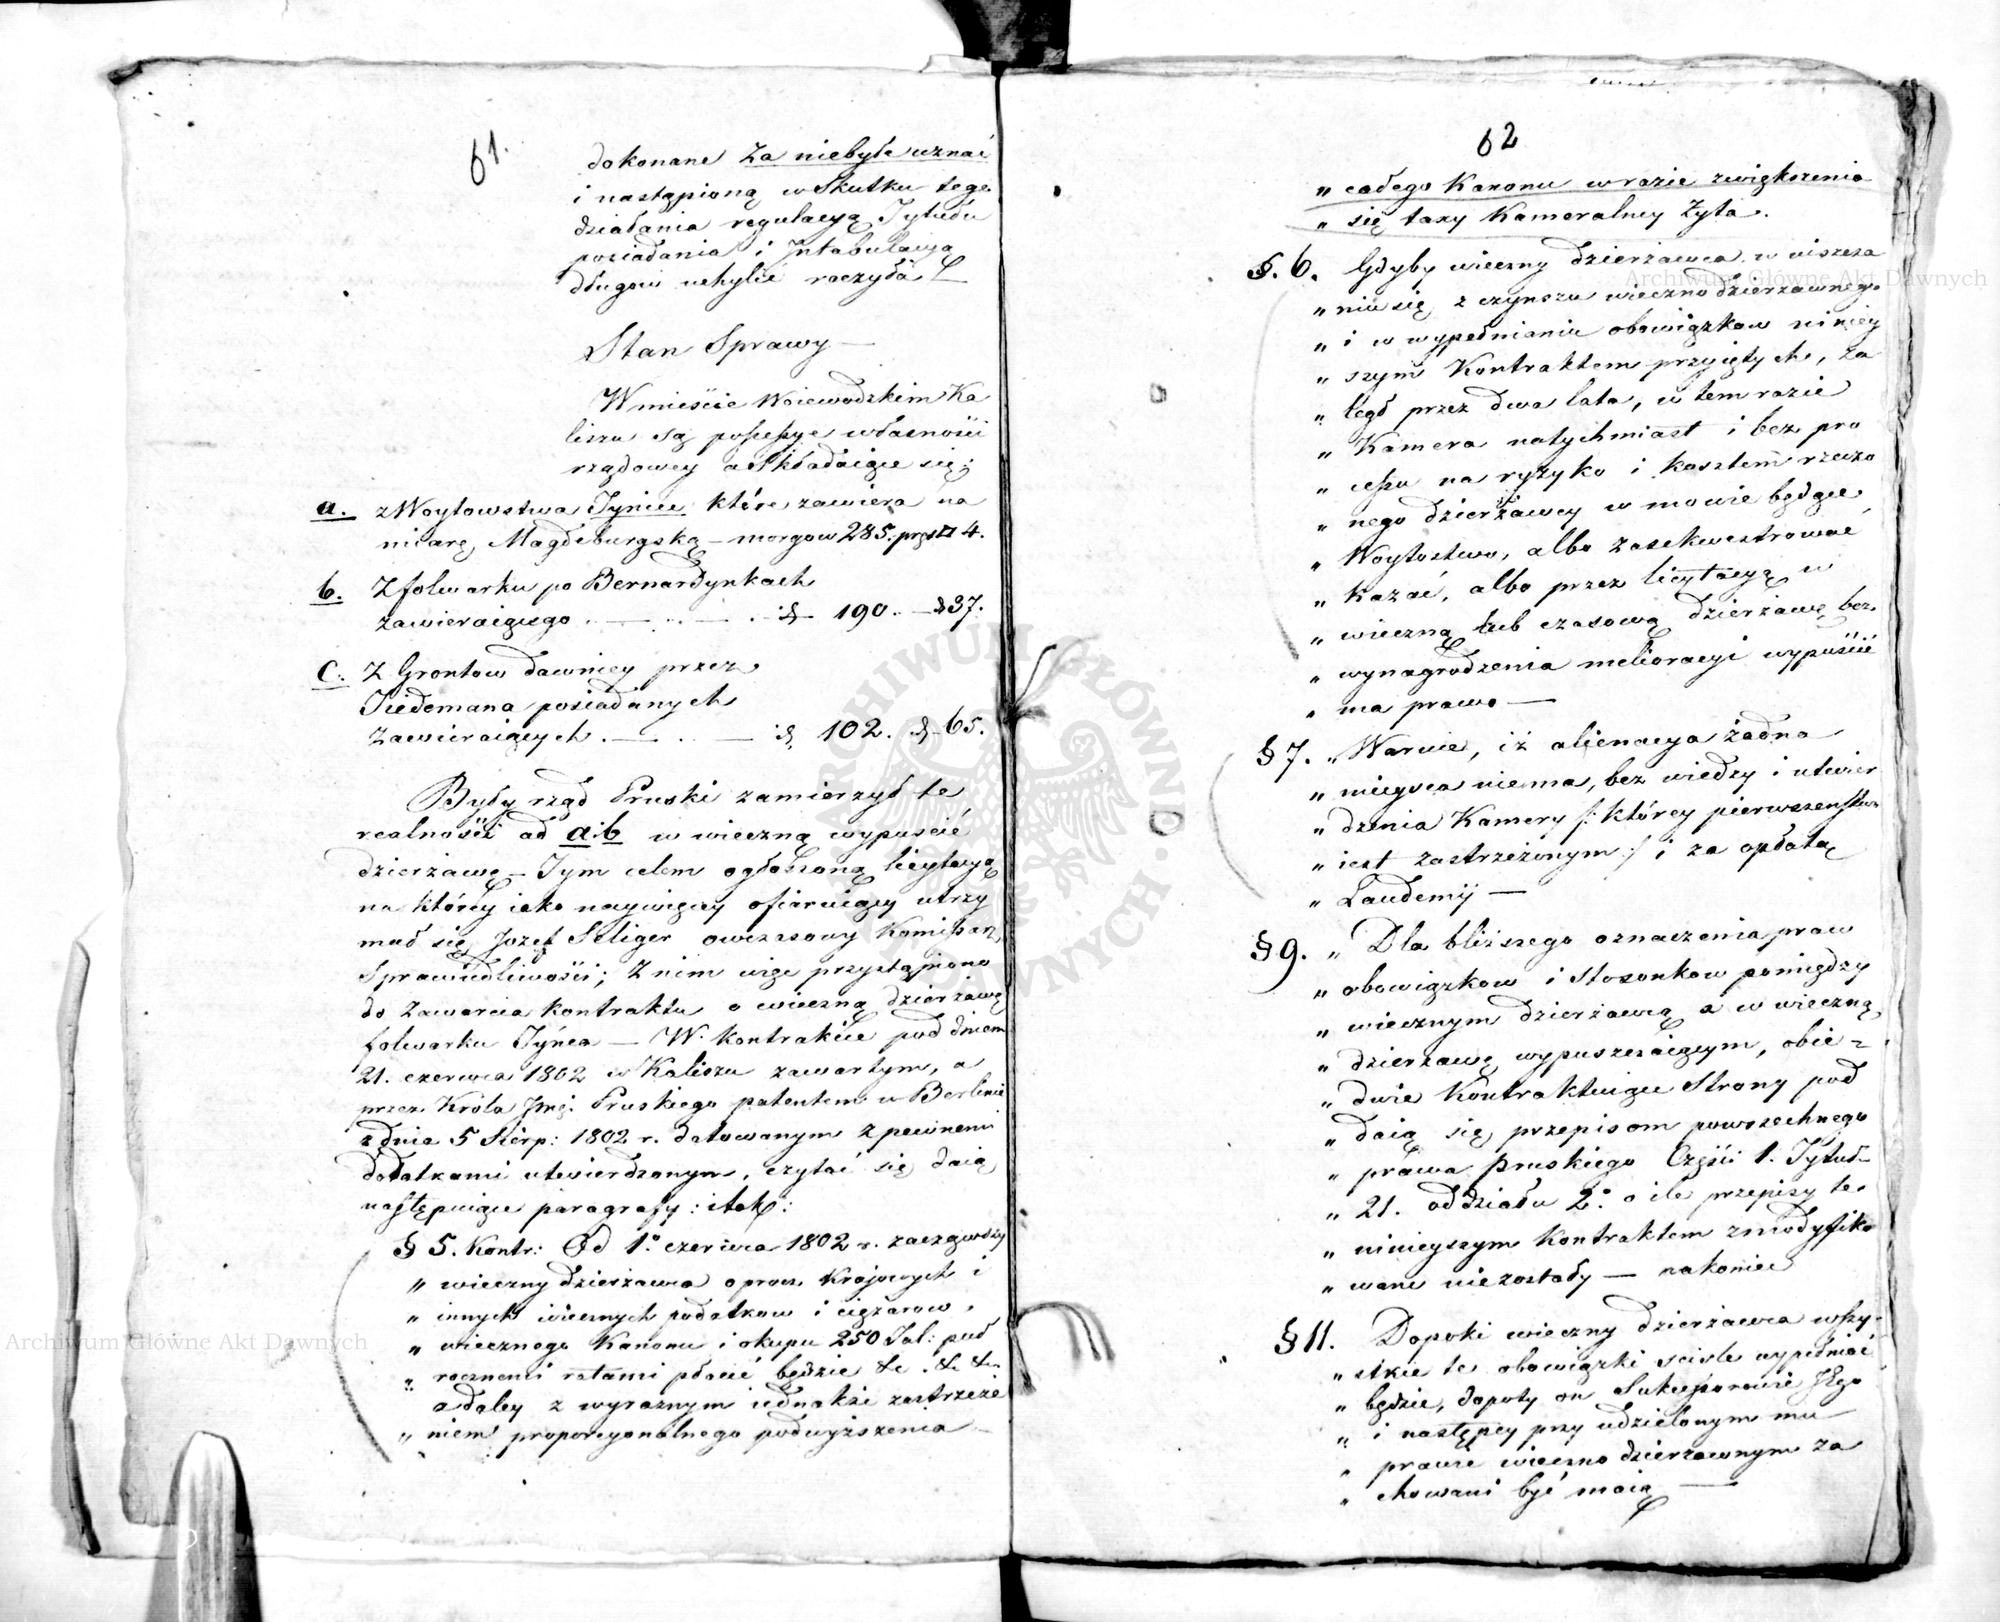 61.
dokonane za niebyłe uznać
i nastąpioną w Skutku tego
działania regulacyą Tytułu
posiadania i Intabulacyą
długów uchylić raczyła
Stan Sprawy —
W mieście Woiewodzkim Ka
liszu są possessye własności
rządowey a składaiące się:
a. z Woytowstwa Tyniec które zawiera na
miarę Magdeburgską — morgow 285. pręt□ 4.
b. Z folwarku po Bernardynkach
zawieraiącego . — . . — . 190. — 37.
c. Z Grontow dawniey przez
Tiedemana posiadanych
zawieraiących . — . . — 102. 65.
Były rząd Pruski zamierzył te
realności ad a:b w wieczną wypuścić
dzierżawę — Tym celem ogłoszoną licytacyą
na którey iako naywięcey ofiaruiący utrzy
mał się Jozef Seliger owczasowy Komissarz
Sprawiedliwości; Z nim więc przystąpiono
do zawarcia kontraktu o wieczną dzierżawę
folwarku Tyńca — W kontrakcie pod dniem
21. czerwca 1802 w Kaliszu zawartym, a
przez Króla Jmć: Pruskiego patentem w Berlinie
z dnia 5 Sierp: 1802 r. datowanym z pewnemi
dodatkami utwierdzonym, czytać się daią
następuiące paragrafy: i tak:
§ 5. Kontr: Od 1° czerwca 1802 r. zacząwszy
„ wieczny dzierżawca oprocz Krajowych i
„ innych wiecznych podatkow i ciężarow,
„ wiecznego Kanonu i okupu 250 Tal: puł
„ rocznemi ratami płacić będzie &c. &c. &c.
a daley z wyraznym iednakże zastrzeże
„ niem proporcyonalnego podwyższenia
62
„ całego Kanonu w razie zwiększenia
„ się taxy Kameralney Żyta.
§. 6. Gdyby wieczny dzierżawca w uiszcza
„ niu się z czynszu wieczno dzierzawnego
„ i w wypełnianiu obowiązkow niniey
„ szym Kontraktem przyiętych, za
„ legł przez dwa lata, w tem razie
„ Kamera natychmiast i bez pro
„ cessu na ryzyko i kosztem rzeczo
„ nego dzierżawcy w mowie będące
„ Woytostwo, albo zasekwestrować
„ kazać, albo przez licytacyą w
„ wieczną lub czasową dzierżawę bez
„ wynagrodzenia melioracyi wypuścić
„ ma prawo —
§ 7. „ Waruie, iż alienacya żadna
„ mieysca niema, bez wiedzy i utwier
„ dzenia Kamery /: którey pierwszeństwo
„ iest zastrzeżonym :/ i za opłatą
„ Laudemij —
§ 9. „ Dla bliższego oznaczenia praw
„ obowiązkow i stosonkow pomiędzy
„ wiecznym dzierżawcą a w wieczną
„ dzierżawę wypuszczaiącym, obie =
„ dwie Kontraktuiące Strony pod
„ daią się przepisom powszechnego
„ prawa pruskiego Części 1. Tytuł
„ 21. oddziału 2° o ile przepisy te
„ ninieyszym kontraktem zmodyfiko
„ wane niezostały — nakoniec
§ 11. Dopoki wieczny dzierżawca wszy
„ stkie te obowiązki scisle wypełniać
„ będzie, dopoty on Sukcessorowie Jego
„ i następcy przy udzielonym mu
„ prawie wieczno dzierżawnym za
„ chowani być maią —
Archiwum Główne Akt Dawnych
Archiwum Główne Akt Dawnych